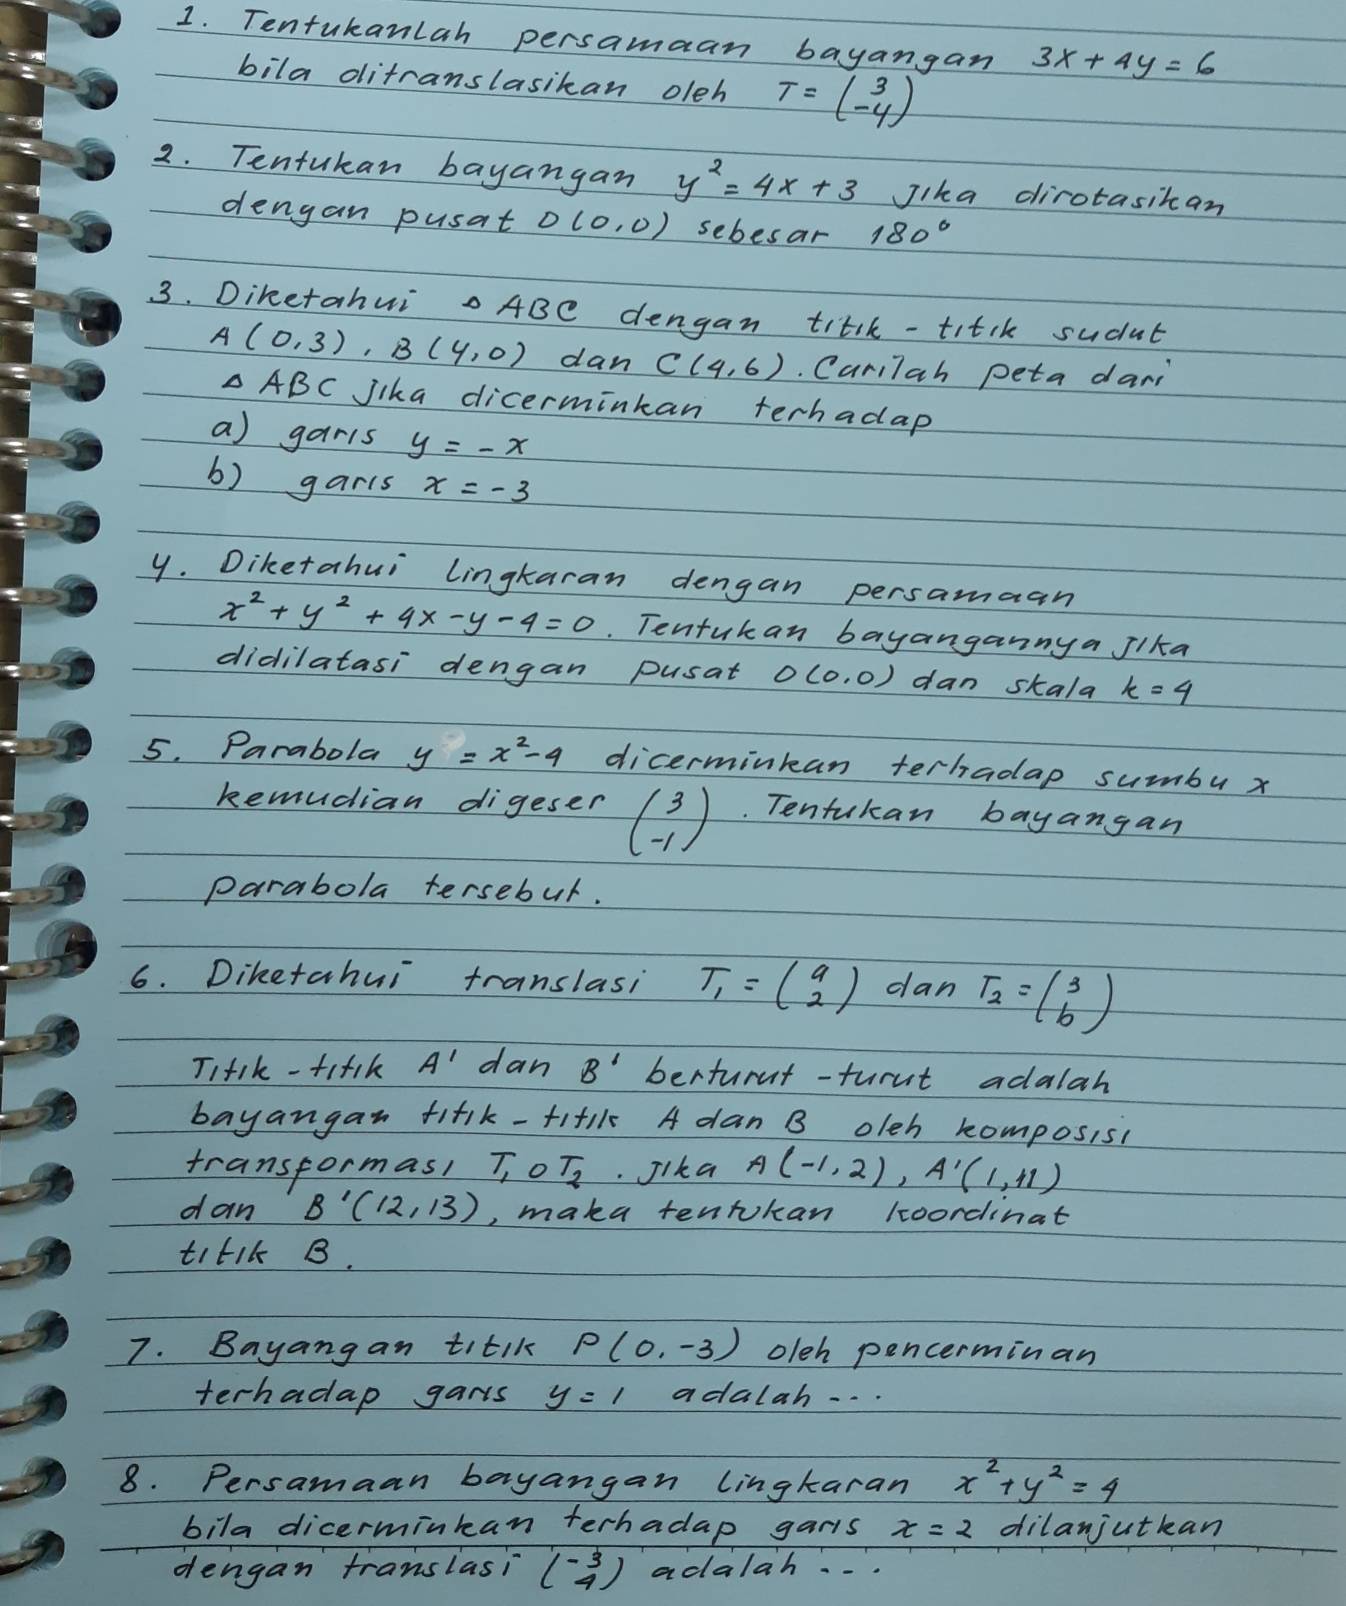 1. Tentukanlah persamaan bayangan 3x + 4y = 6
bila ditranslasikan oleh T = (3 -4)
2. Tentukan bayangan y² = 4x + 3 jika dirotasikan
dengan pusat O(0,0) sebesar 180°
3. Diketahui △ ABC dengan titik - titik sudut
A(0,3), B(4,0) dan C(4,6). Carilah peta dari
△ ABC jika dicerminkan terhadap
a) garis y = -x
b) garis x = -3
4. Diketahui lingkaran dengan persamaan
x² + y² + 4x - y - 4 = 0. Tentukan bayangannya jika
didilatasi dengan pusat O(0,0) dan skala k = 4
5. Parabola y = x² - 4 dicerminkan terhadap sumbu x
kemudian digeser (3 -1). Tentukan bayangan
parabola tersebut.
6. Diketahui translasi T₁ = (a 2) dan T₂ = (3 b)
Titik - titik A' dan B' berturut - turut adalah
bayangan titik - titik A dan B oleh komposisi
transformasi T₁ o T₂. Jika A(-1,2), A'(1,11)
dan B'(12,13), maka tentukan koordinat
titik B.
7. Bayangan titik P(0,-3) oleh pencerminan
terhadap garis y = 1 adalah ...
8. Persamaan bayangan lingkaran x² + y² = 4
bila dicerminkan terhadap garis x = 2 dilanjutkan
dengan translasi (-3 4) adalah ...